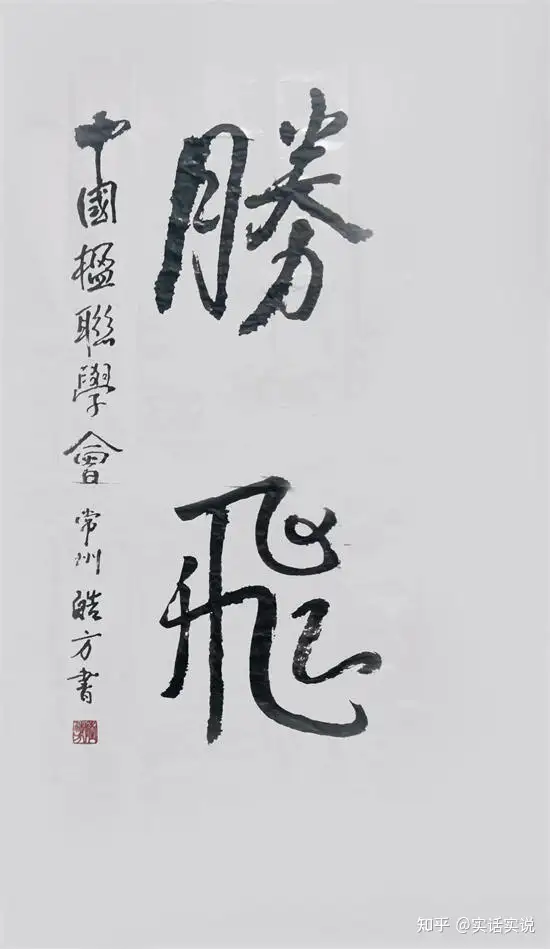 勝飛
中國楹聯學會 常州皓方書
知乎 @实话实说